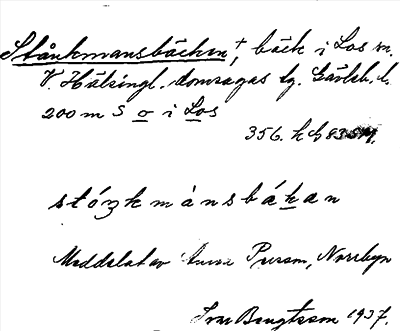 Stånkmansbäcken, bäck i Los sn.
V. Hälsingl. domsagas tg. Gävleb. l.
200 m S o i Los
356. h b 83
stóŋkmànsbákan
Meddelat av Persson, Norrbyn
Ivar Bengtsson 1937.